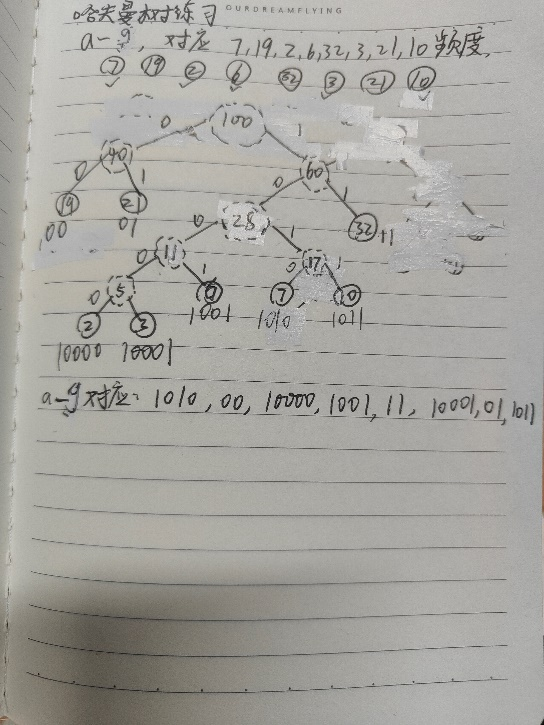 哈夫曼树练习
OURDREAMFLYING
a-g, 对应 7,19,2,6,32,3,21,10 频度.
7 19 2 6 32 3 21 10
0 100 1
40 60
0 1 0 1
19 21 28 32
00 01 0 1 11
11 17
0 1 0 1
5 7 10
0 1 1001 1010 1011
2 3
10000 10001
a-g对应: 1010, 00, 10000, 1001, 11, 10001, 01, 1011